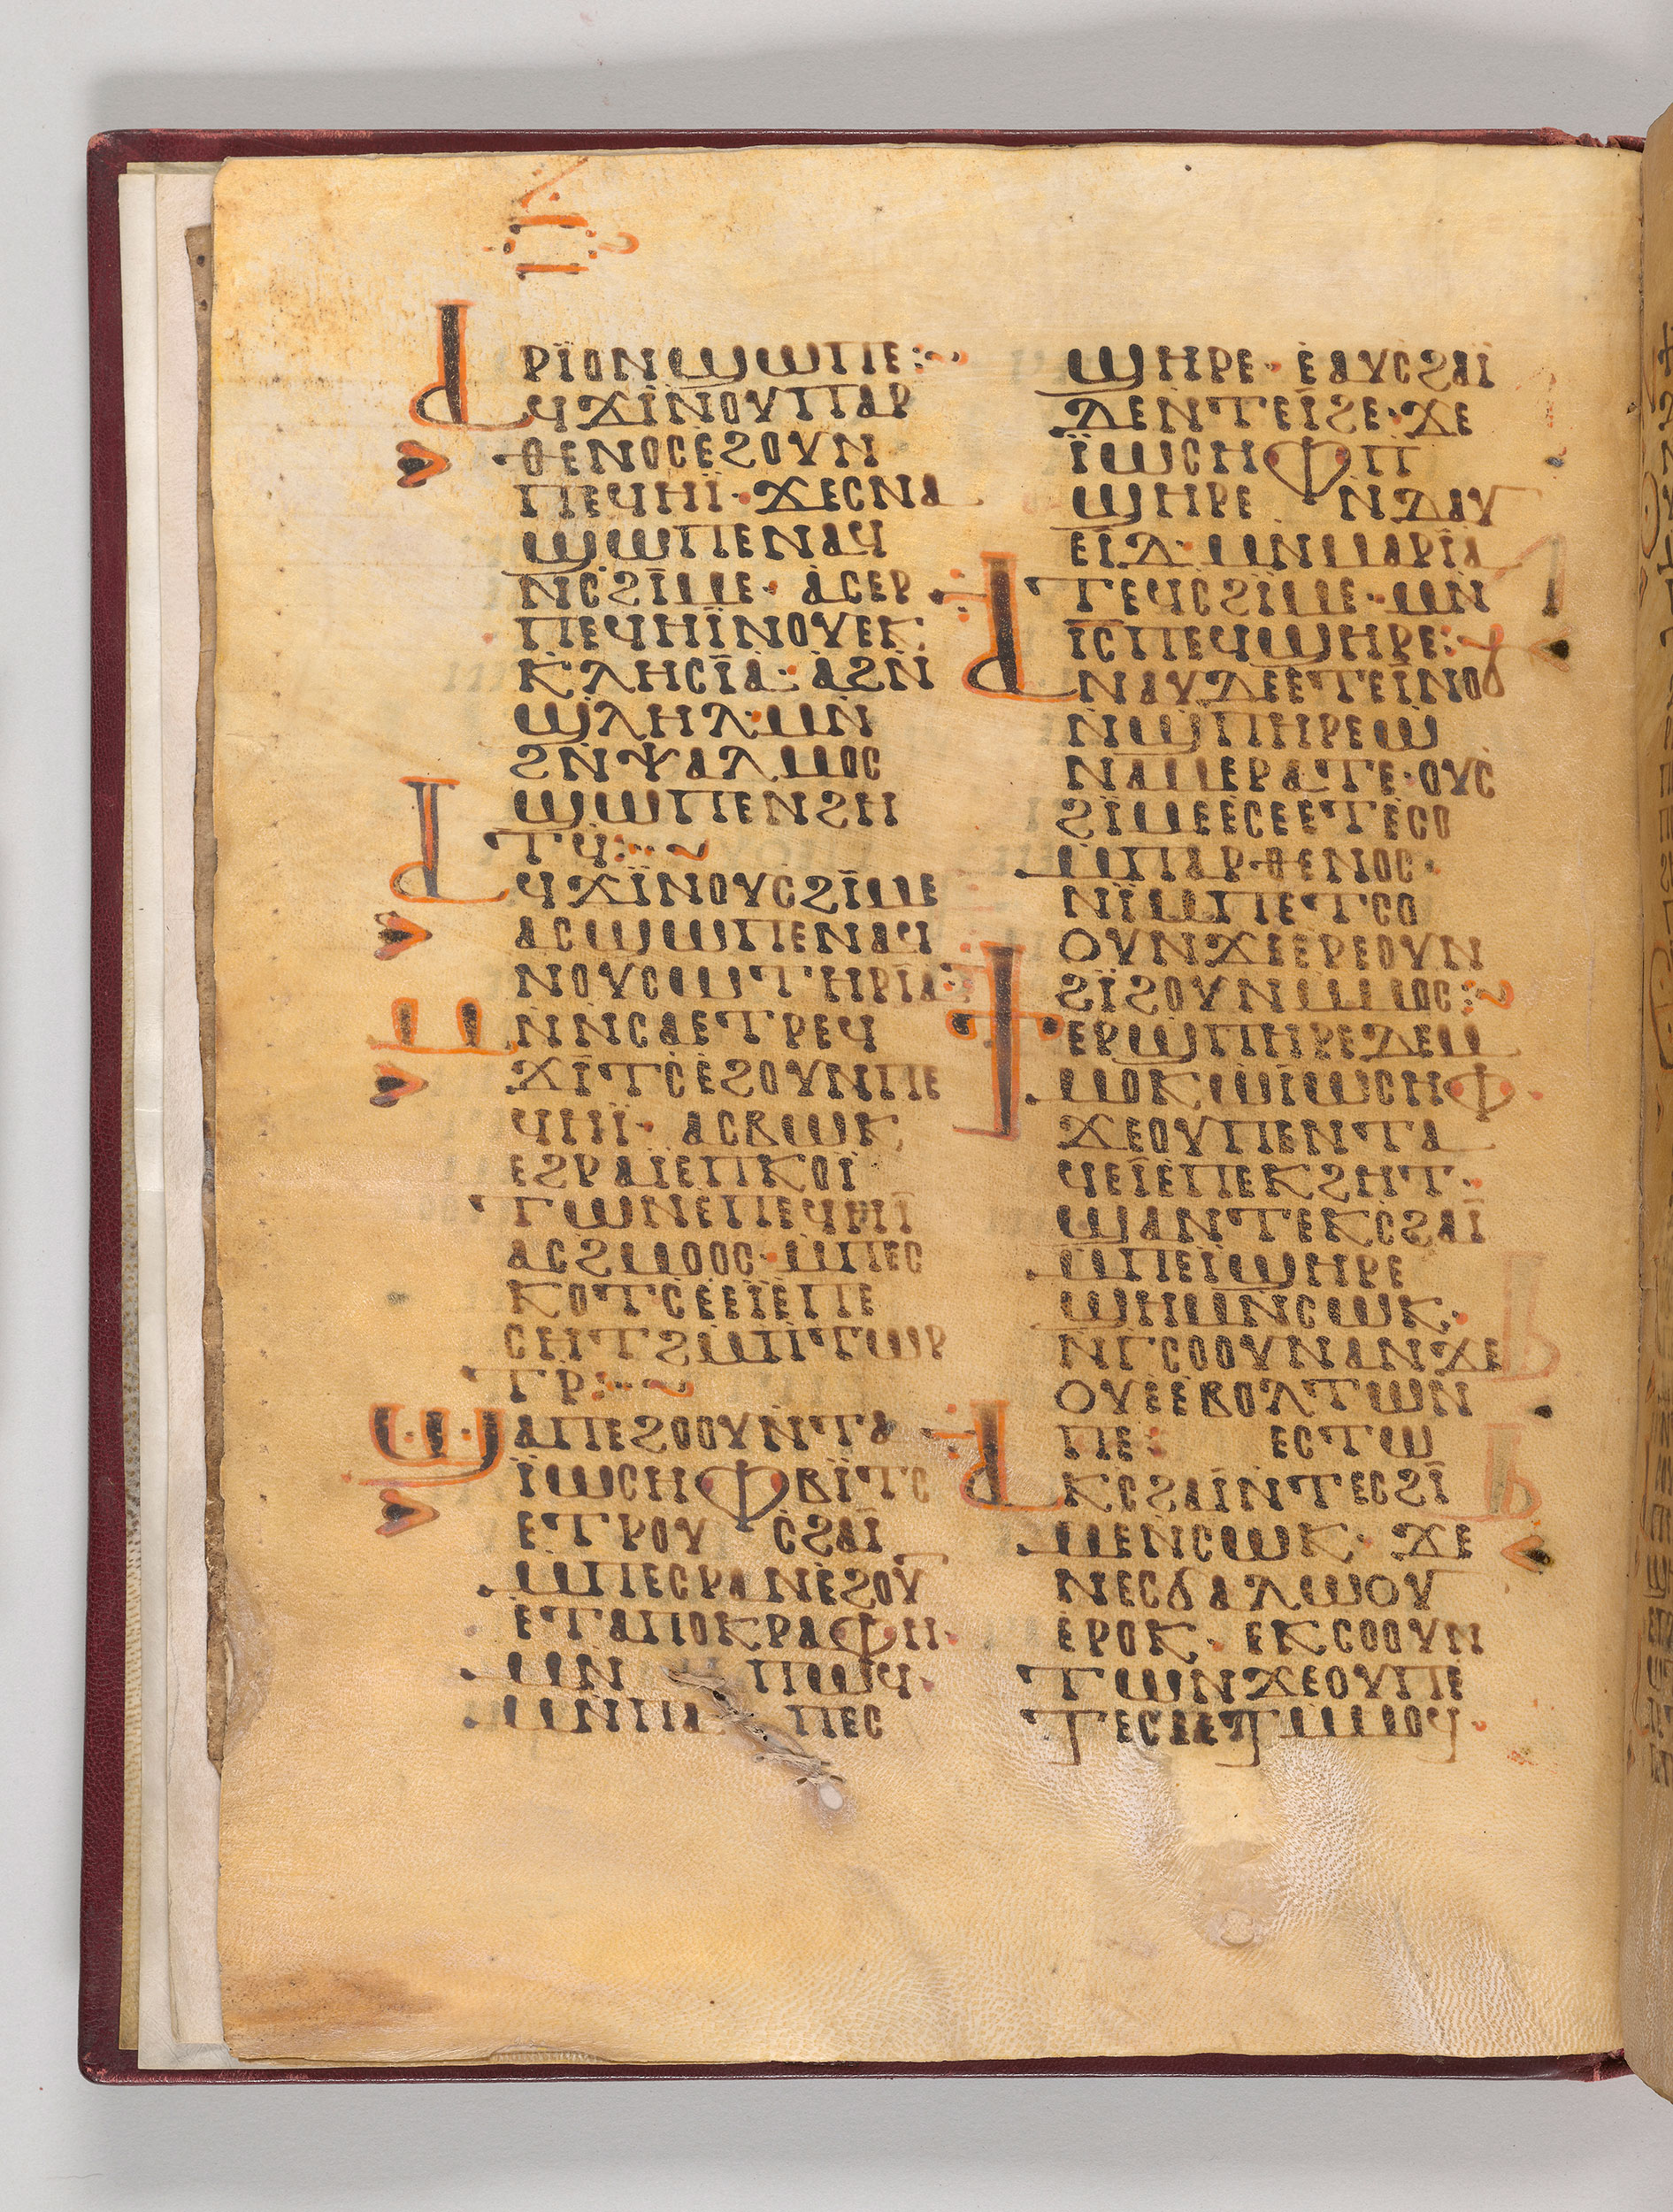 ⲢⲒ̈ⲞⲚϢⲰⲠⲈ:~
ⲀϤϪⲒ̈ⲚⲞⲨⲠⲀⲢ
ⲐⲈⲚⲞⲤⲈ̇ϨⲞⲨⲚ
ⲠⲈϤⲎⲒ̈·ϪⲈⲤⲚⲀ
ϢⲰⲠⲈⲚⲀϤ
ⲚⲤϨⲒ̄ⲘⲈ· ⲀⲤⲈⲢ
ⲠⲈϤⲎⲒ̈ⲚⲞⲨⲈⲔ
ⲔⲖⲎⲤⲒ̄Ⲁ· ⲀϨⲚ̇
ϢⲖⲎⲖ·ⲘⲚ̇
ϨⲚ̇ⲮⲀⲖⲘⲞⲤ
ϢⲰⲠⲈⲚϨⲎ
ⲦϤ̇:~
ⲀϤϪⲒ̈ⲚⲞⲨⲤϨⲒ̄ⲘⲈ
ⲀⲤϢⲰⲠⲈⲚⲀϤ
ⲚⲞⲨⲤⲰⲦⲎⲢⲒ̄Ⲁ:
ⲘⲚ̇ⲚⲤⲀⲈⲦⲢⲈϤ
ϪⲒ̄ⲦⲤ̇Ⲉ̇ϨⲞⲨⲚⲠⲈ
ϤⲎⲒ̈· ⲀⲤⲂⲰⲔ
ⲈϨⲢⲀⲒ̈ⲈⲠⲔⲞⲒ̈
ⲦⲰⲚⲈⲠⲈϤⲎⲒ̄
ⲀⲤϨⲘⲞⲞⲤ·Ⲙ̇ⲠⲈⲤ
ⲔⲞⲦⲤ̇Ⲉ̇ⲈⲒ̈Ⲉ̇ⲠⲈ
ⲤⲎⲦϨⲘ̇ⲠⲒ̇ⲦⲰⲢ
ⲦⲢ̇:~
ϢⲀⲠⲈϨⲞⲞⲨⲚ̇ⲦⲀ
Ⲓ̈ⲰⲤⲎⲪⲂⲒ̈ⲦⲤ
ⲈⲦⲢⲞⲨ ⲤϨⲀⲒ̄
Ⲙ̇ⲠⲈⲤⲢⲀⲚⲈ̇ϨⲞⲨ
Ⲉ̇ⲦⲀⲠⲞⲔⲢⲀⲪⲎ·
ⲘⲚ ⲠⲰϤ·
ⲘⲚⲠⲀ ⲠⲈⲤ
ϢⲎⲢⲈ· Ⲉ̇ⲀⲨⲤϨⲀⲒ̈
ⲆⲈⲚⲦⲈⲒ̄ϨⲈ·ϪⲈ
Ⲓ̈ⲰⲤⲎⲪⲠ
ϢⲎⲢⲈ ⲚⲆⲀⲨ
ⲈⲒ̄Ⲇ·ⲘⲚⲘⲀⲢⲒ̄Ⲁ
ⲦⲈϤⲤϨⲒ̄ⲘⲈ·ⲘⲚ̇
Ⲓ̄ⲤⲠⲈϤϢⲎⲢⲈ:
ⲀⲚⲀⲨⲆⲈⲈⲦⲈⲒ̄ⲚⲞϬ
Ⲛ̇ϢⲠⲎⲢⲈⲰ̇
ⲚⲀⲘⲈⲢⲀⲦⲈ·ⲞⲨⲤ
ϨⲒ̄ⲘⲈⲈ̇ⲤⲈⲈⲦⲈ̇ⲤⲞ
Ⲙ̇ⲠⲀⲢⲐⲈⲚⲞⲤ·
ⲚⲒ̈ⲘⲠⲈⲦⲤⲞ
ⲞⲨⲚϪⲈⲈ̇ⲢⲈⲞⲨⲚ
ϨⲒ̈ϨⲞⲨⲚⲘⲘⲞⲤ:~
ϮⲈⲢϢⲠⲎⲢⲈⲆⲈⲘ
ⲘⲞⲔⲰ̇Ⲓ̈ⲰⲤⲎⲪ·
ϪⲈⲞⲨⲠⲈⲚⲦⲀ
ϤⲈⲒ̄Ⲉ̇ⲠⲈⲔϨⲎⲦ·
ϢⲀⲚⲦⲈⲔⲤ̇ϨⲀⲒ̄
Ⲙ̇ⲠⲈⲒ̈ϢⲎⲢⲈ
ϢⲎⲘⲚ̇ⲤⲰⲔ·
ⲚⲄⲤⲞⲞⲨⲚⲀⲚϪⲈ
ⲞⲨⲈ̇ⲈⲂⲞⲖⲦⲰⲚ
ⲠⲈ: ⲈⲤⲦⲰ
ⲀⲔⲤϨⲀⲒ̈ⲚⲦⲈⲤϨⲒ̄
ⲘⲈⲚ̇ⲤⲰⲔ· ϪⲈ
ⲚⲈⲤϬⲀⲖⲰⲞⲨ
Ⲉ̇ⲢⲞⲔ· ⲈⲔⲤⲞⲞⲨⲚ
ⲦⲰⲚϪⲈⲞⲨⲠⲈ
ⲦⲈⲤⲈⲈⲦⲘⲘⲞϤ·